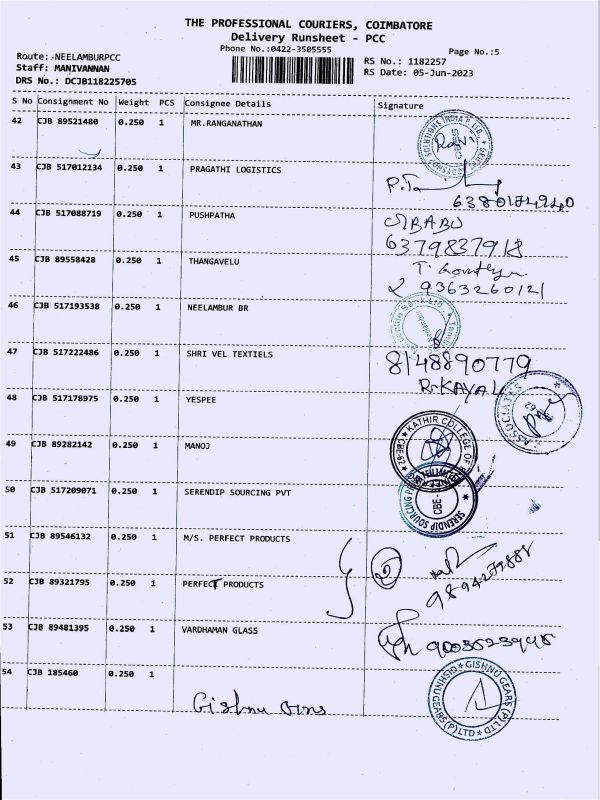 THE PROFESSIONAL COURIERS, COIMBATORE
Delivery Runsheet - PCC
Phone No.:0422-3505555
Page No.:5
Route: NEELAMBURPCC
Staff: MANIVANNAN
DRS No.: DCJB118225705
RS No.: 1182257
RS Date: 05-Jun-2023
S No Consignment No Weight PCS Consignee Details Signature
42 CJB 89521480 0.250 1 MR.RANGANATHAN
43 CJB 517012134 0.250 1 PRAGATHI LOGISTICS
6380174940
44 CJB 517088719 0.250 1 PUSHPATHA
BABU
6379837918
45 CJB 89558428 0.250 1 THANGAVELU
9363260121
46 CJB 517193538 0.250 1 NEELAMBUR BR
47 CJB 517222486 0.250 1 SHRI VEL TEXTIELS 8148890779
R.KAYAL
48 CJB 517178975 0.250 1 YESPEE
ASSOCIATES
49 CJB 89282142 0.250 1 MANOJ
KATHIR COLLEGE OF
CBE-62
50 CJB 517209071 0.250 1 SERENDIP SOURCING PVT
SERENDIP SOURCING
CBE-
51 CJB 89546132 0.250 1 M/S. PERFECT PRODUCTS
2
52 CJB 89321795 0.250 1 PERFECT PRODUCTS
53 CJB 89481395 0.250 1 VARDHAMAN GLASS
54 CJB 185460 0.250 1
Gishnu Gears
GISHNU GEARS (P) LTD
GISHNU GEARS (P) LTD